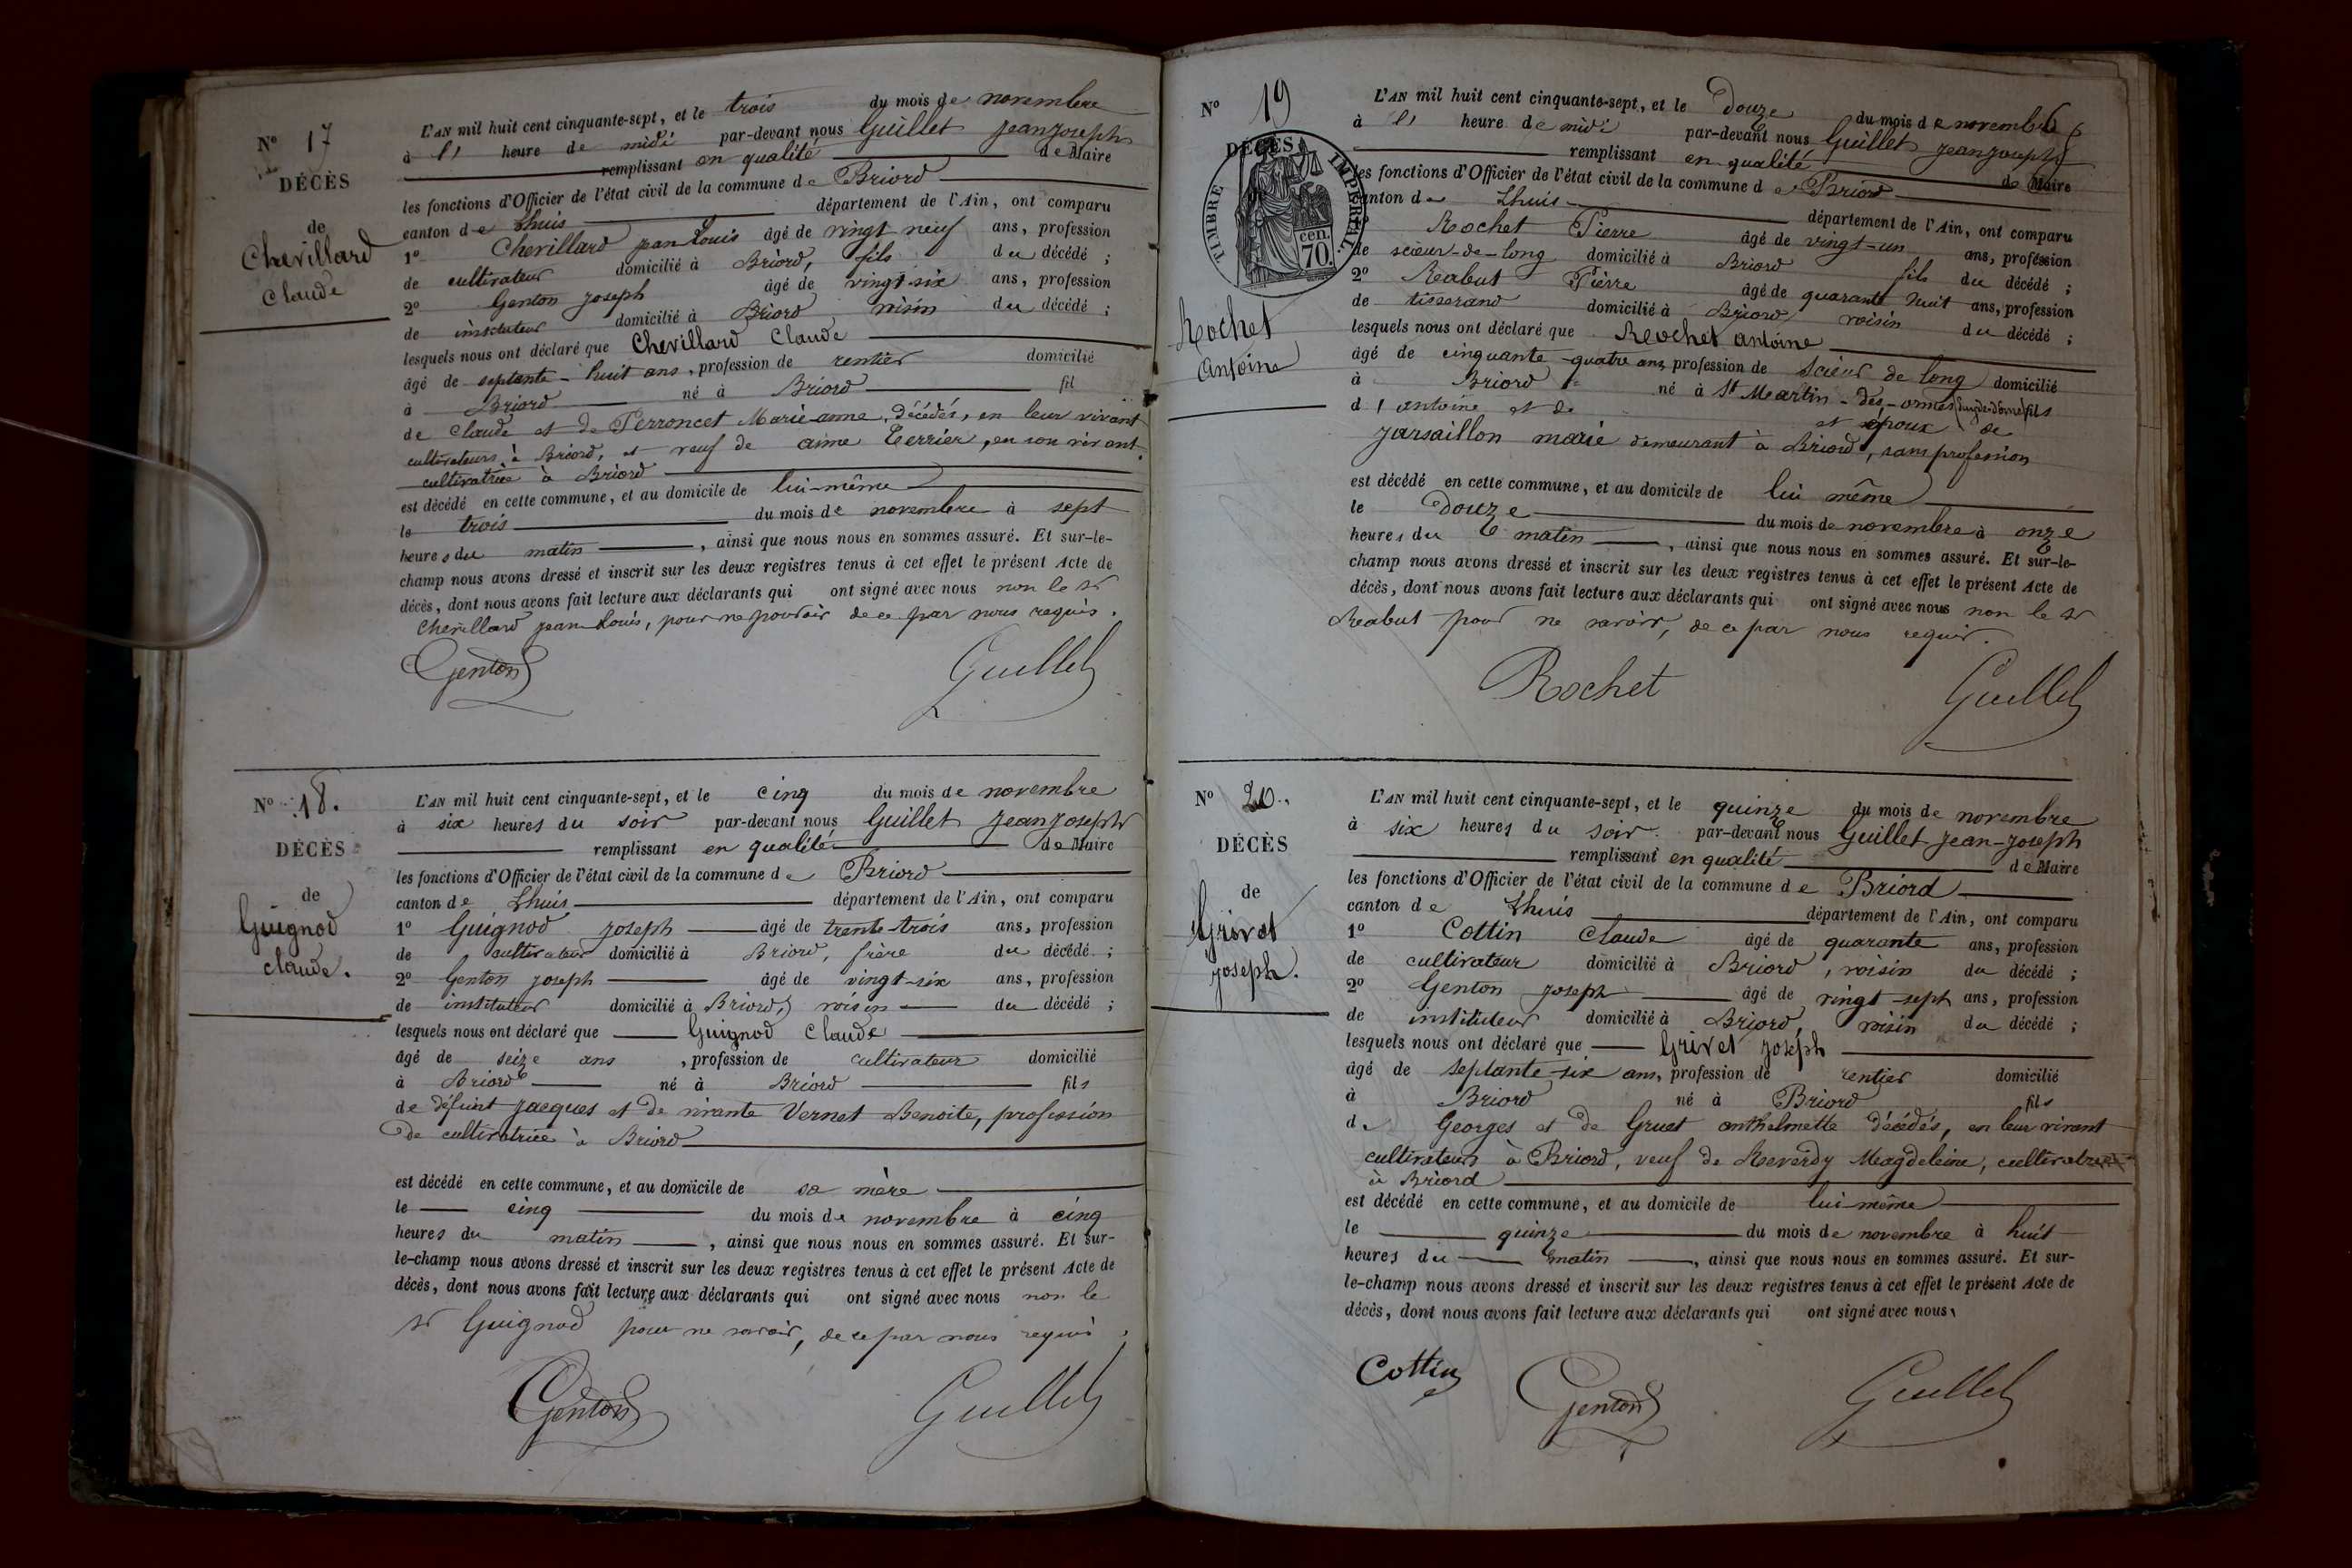 N° 17
DÉCÈS
de
Chevillard
Claude
L'AN mil huit cent cinquante-sept, et le trois du mois de novembre
à l' heure de midi par-devant nous Guillet jean joseph
remplissant en qualité de Maire
les fonctions d'Officier de l'état civil de la commune de Briord
canton de Lhuis département de l'Ain, ont comparu
1° Chevillard jean Louis âgé de vingt neuf ans, profession
de cultivateur domicilié à Briord, fils du décédé ;
2° Genton joseph âgé de vingt-six ans, profession
de instituteur domicilié à Briord voisin du décédé ;
lesquels nous ont déclaré que Chevillard Claude
âgé de septante-huit ans, profession de rentier domicilié
à Briord né à Briord fil
de Claude et de Perroncet Marie-anne, décédés, en leur vivant
cultivateurs à Briord, et veuf de anne Terrier, en son vivant
cultivatrice à Briord
est décédé en cette commune, et au domicile de lui-même
le trois du mois de novembre à sept
heures du matin, ainsi que nous nous en sommes assuré. Et sur-le-
champ nous avons dressé et inscrit sur les deux registres tenus à cet effet le présent Acte de
décès, dont nous avons fait lecture aux déclarants qui ont signé avec nous non le sr
Chevillard jean Louis, pour ne pouvoir de ce par nous requis.
Genton Guillet
N° 18.
DÉCÈS
de
Guignod
claude.
L'AN mil huit cent cinquante-sept, et le cinq du mois de novembre
à six heures du soir par-devant nous Guillet jean joseph
remplissant en qualité de Maire
les fonctions d'Officier de l'état civil de la commune de Briord
canton de Lhuis département de l'Ain, ont comparu
1° Guignod joseph âgé de trente-trois ans, profession
de cultivateur domicilié à Briord, frère du décédé ;
2° Genton joseph âgé de vingt-six ans, profession
de instituteur domicilié à Briord, voisin du décédé ;
lesquels nous ont déclaré que Guignod Claude
âgé de seize ans, profession de cultivateur domicilié
à Briord né à Briord fils
de défunt Jacques et de vivante Vernet Benoite, profession
de cultivatrice à Briord
est décédé en cette commune, et au domicile de sa mère
le cinq du mois de novembre à cinq
heures du matin, ainsi que nous nous en sommes assuré. Et sur-
le-champ nous avons dressé et inscrit sur les deux registres tenus à cet effet le présent Acte de
décès, dont nous avons fait lecture aux déclarants qui ont signé avec nous non le
sr Guignod pour ne savoir, de ce par nous requis.
Genton Guillet
N° 19
DÉCÈS
TIMBRE IMPÉRIAL
cen. 70.
Rochet
Antoine
L'AN mil huit cent cinquante-sept, et le douze du mois de novembre
à l' heure de midi par-devant nous Guillet jean joseph
remplissant en qualité de Maire
les fonctions d'Officier de l'état civil de la commune de Briord
canton de Lhuis département de l'Ain, ont comparu
Rochet Pierre âgé de vingt-un ans, profession
de scieur-de-long domicilié à Briord fils du décédé ;
2° Reabut Pierre âgé de quarante huit ans, profession
de tisserand domicilié à Briord, voisin du décédé ;
lesquels nous ont déclaré que Rochet antoine
âgé de cinquante-quatre ans, profession de scieur de long domicilié
à Briord né à St Martin-des-ormes (Puy-de-dôme) fils
d'antoine et de et époux de
jarsaillon marie demeurant à Briord, sans profession
est décédé en cette commune, et au domicile de lui même
le douze du mois de novembre à onze
heures du matin, ainsi que nous nous en sommes assuré. Et sur-le-
champ nous avons dressé et inscrit sur les deux registres tenus à cet effet le présent Acte de
décès, dont nous avons fait lecture aux déclarants qui ont signé avec nous non le sr
Reabut pour ne savoir, de ce par nous requis.
Rochet Guillet
N° 20.
DÉCÈS
de
Grivet
joseph.
L'AN mil huit cent cinquante-sept, et le quinze du mois de novembre
à six heures du soir par-devant nous Guillet jean-joseph
remplissant en qualité de Maire
les fonctions d'Officier de l'état civil de la commune de Briord
canton de Lhuis département de l'Ain, ont comparu
1° Cottin Claude âgé de quarante ans, profession
de cultivateur domicilié à Briord, voisin du décédé ;
2° Genton joseph âgé de vingt-sept ans, profession
de instituteur domicilié à Briord, voisin du décédé ;
lesquels nous ont déclaré que Grivet joseph
âgé de septante-six ans, profession de rentier domicilié
à Briord né à Briord fils
de Georges et de Gruet anthelmette décédés, en leur vivant
cultivateurs à Briord, veuf de Reverdy Magdeleine, cultivatrice
à Briord
est décédé en cette commune, et au domicile de lui-même
le quinze du mois de novembre à huit
heures du matin, ainsi que nous nous en sommes assuré. Et sur-
le-champ nous avons dressé et inscrit sur les deux registres tenus à cet effet le présent Acte de
décès, dont nous avons fait lecture aux déclarants qui ont signé avec nous.
Cottin Genton Guillet